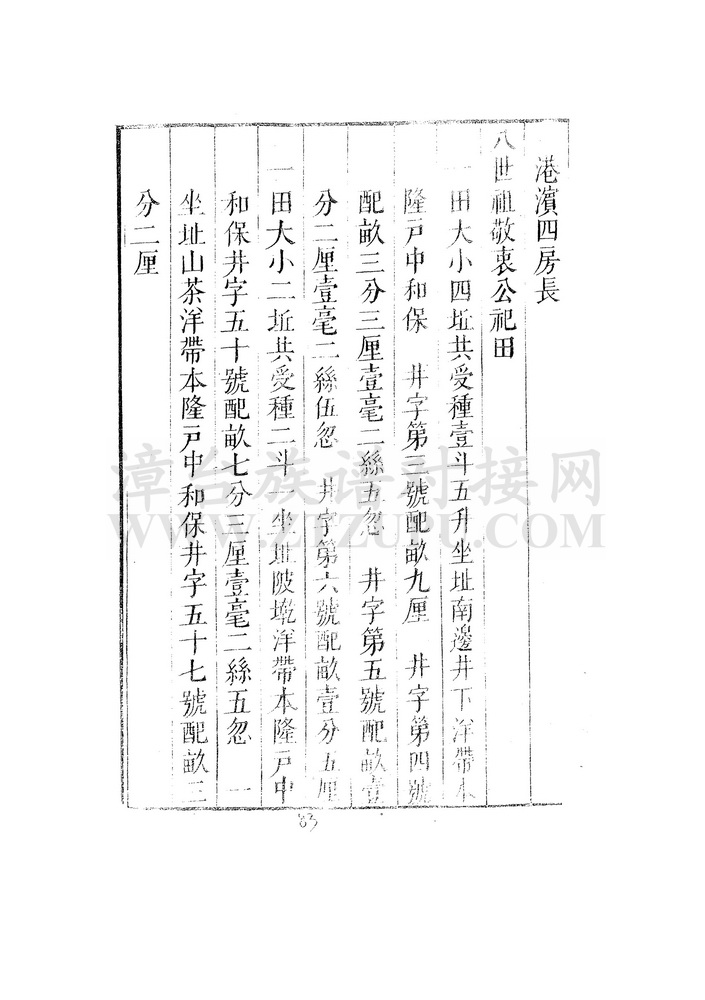 港濱四房長
八世祖敬衷公祀田
一田大小四坵共受種壹斗五升坐址南邊井下洋帶本
隆戸中和保　井字第三號配畝九厘　井字第四號
配畝三分三厘壹毫二絲五忽　井字第五號配畝壹
分二厘壹毫二絲伍忽　井字第六號配畝壹分五厘
一田大小二坵共受種二斗一坐址陂墘洋帶本隆戸中
和保井字五十號配畝七分三厘壹毫二絲五忽　一
坐址山茶洋帶本隆戸中和保井字五十七號配畝三
分二厘
漳台族谱对接网
WWW.ZTZUPU.COM
83